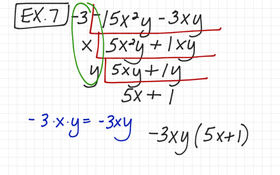 EX. 7
-3 -15x²y - 3xy
x 5x²y + 1xy
y 5xy + 1y
5x + 1
-3·x·y = -3xy
-3xy(5x+1)